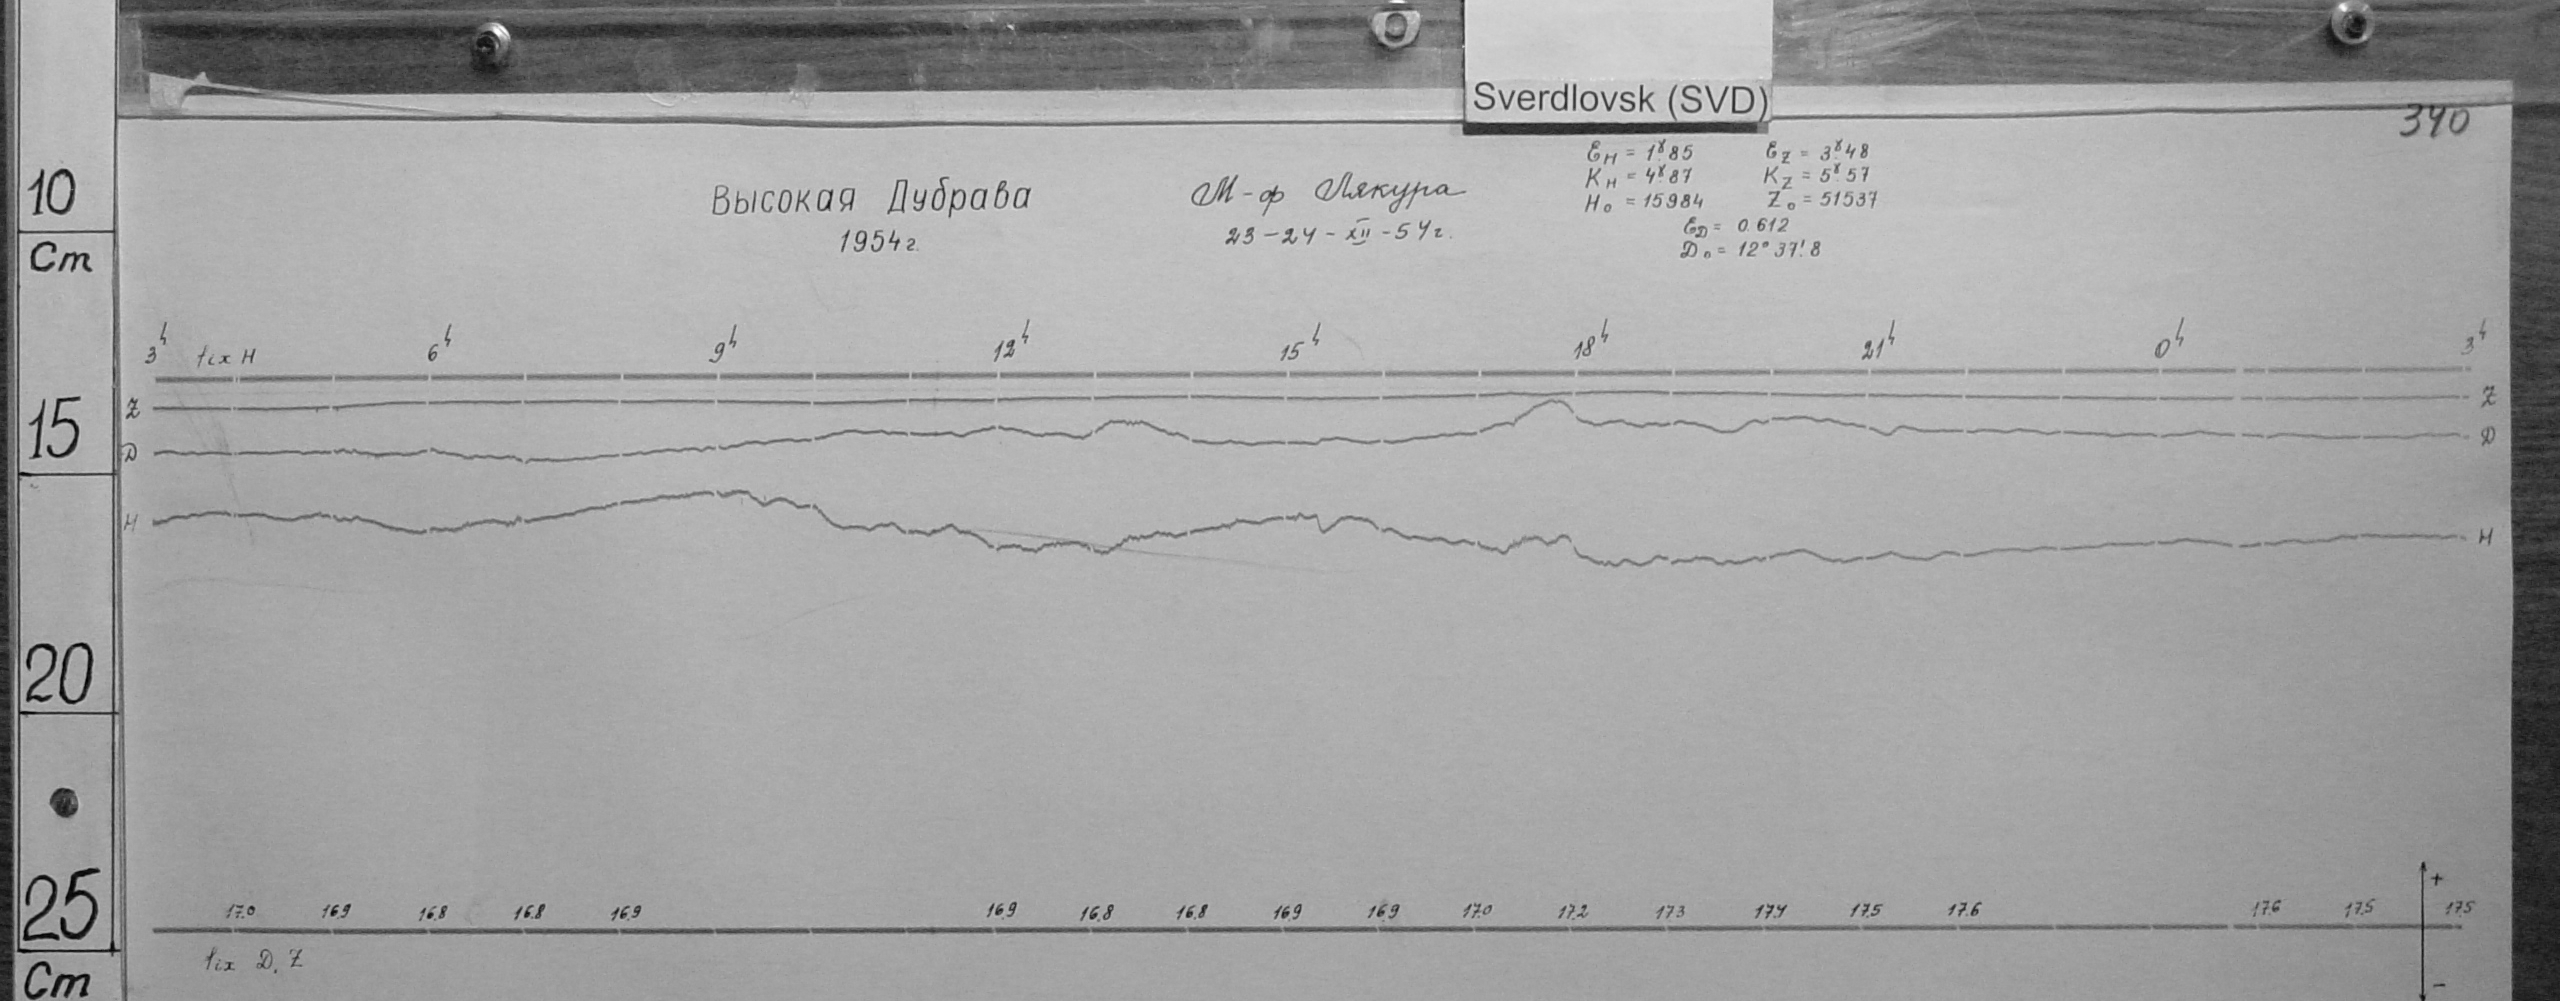 Sverdlovsk (SVD)
340
10
Cm
15
20
25
Cm
Высокая Дубрава
1954 г.
М-ф Лякура
23-24-XII-54 г.
Ɛн = 1ˠ.85 Ɛz = 3ˠ.48
Kн = 4ˠ.87 Kz = 5ˠ.57
H₀ = 15984 Z₀ = 51537
ƐD = 0.612
D₀ = 12° 37'.8
3ʰ fix H 6ʰ 9ʰ 12ʰ 15ʰ 18ʰ 21ʰ 0ʰ 3ʰ
Z Z
D D
H H
17.0 16.9 16.8 16.8 16.9 16.9 16.8 16.8 16.9 16.9 17.0 17.2 17.3 17.4 17.5 17.6 17.6 17.5 17.5
+
fix D, Z
-